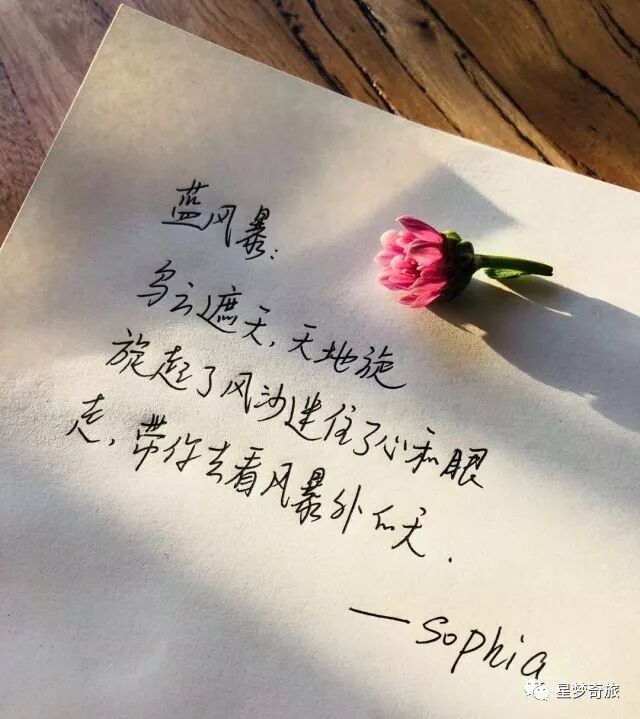 蓝风暴:
乌云遮天,天地旋
旋起了风沙迷住了心和眼
走,带你去看风暴外的天.
—Sophia
星梦奇旅